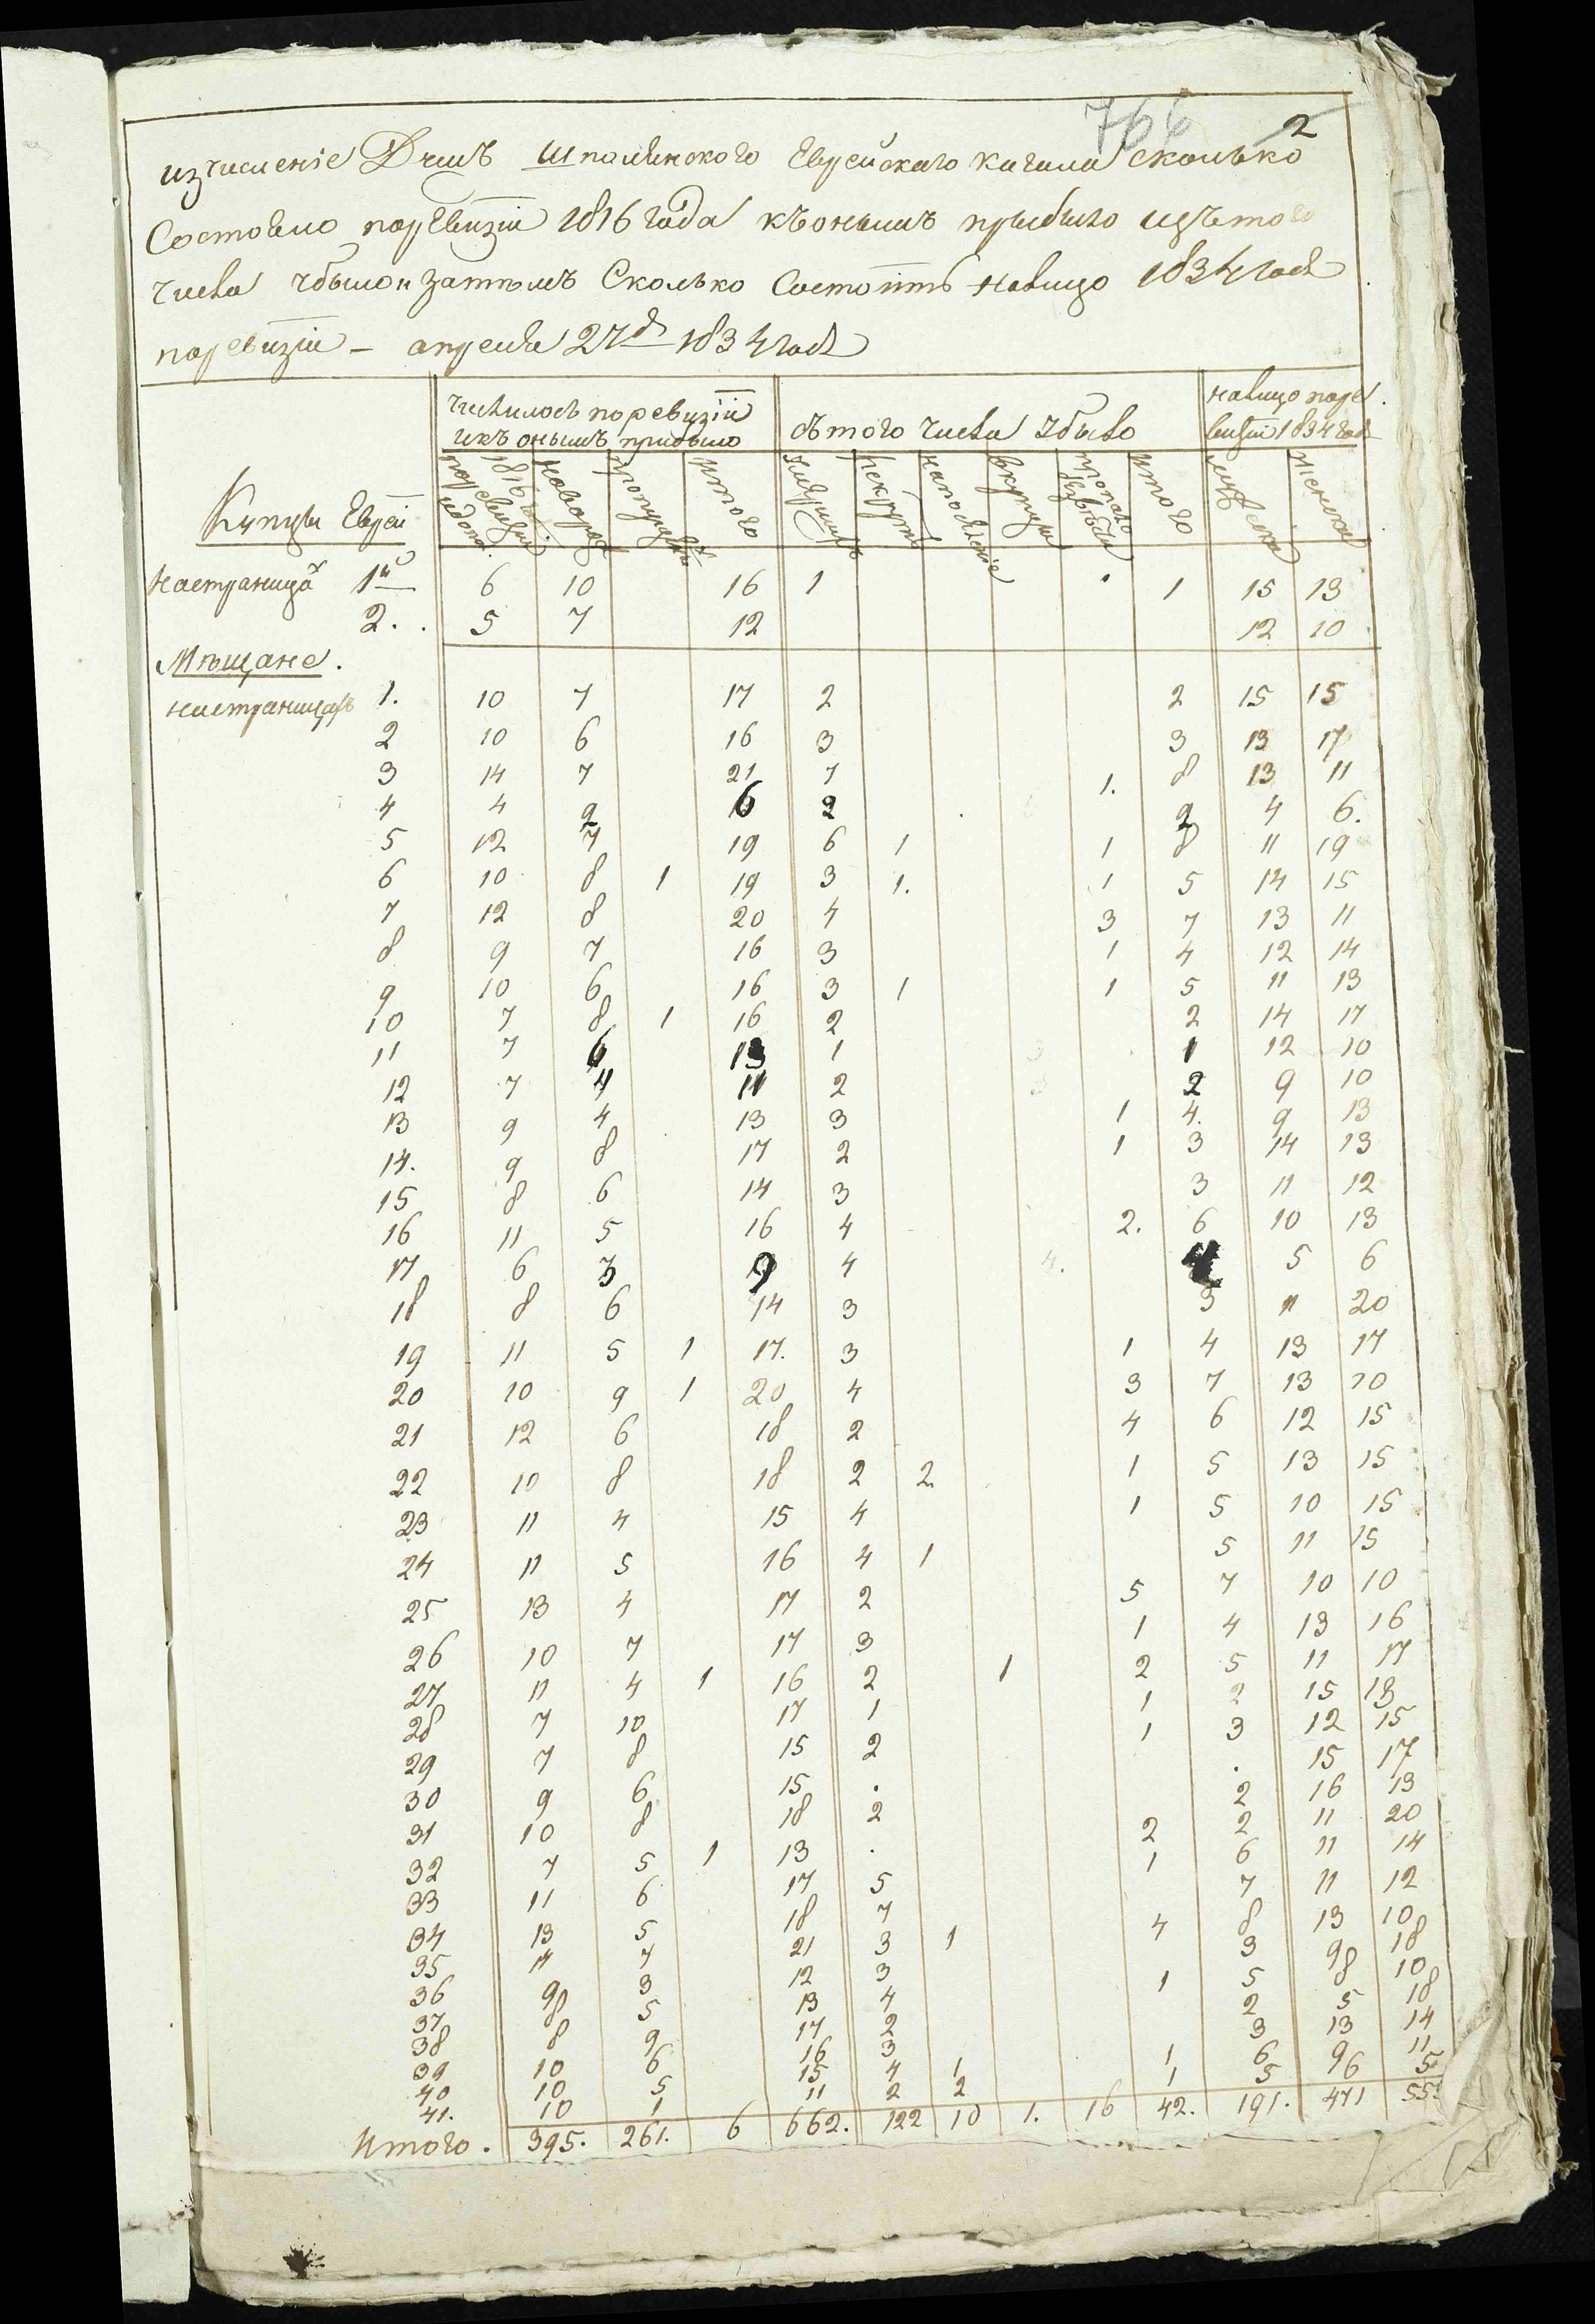 766 2
изчисленіе Душъ Шполянского Еврейскаго кагала сколько
Состояло поревизіи 1816 года къонымъ прыбыло изътого
числа убыло и затѣмъ Сколько Состоитъ налицо 1834 года
поревизіи – апреля 27д 1834 года
числилось поревизіи
икъ онымъ прибыло
съ того числа убыло
налицо поре
визіи 1834 года
Купцы Евреи
поревизіи 1816 итого умерши рекрутъ итого мужеска женска
Настраницѣ 1й 6 10 16 1 1 15 13
2. 5 7 12 12 10
Мѣщане.
настраницахъ 1. 10 7 17 2 2 15 15
2 10 6 16 3 3 13 17
3 14 7 21 7 1. 8 13 11
4 4 2 6 2 2 4 6.
5 12 7 19 6 1 1 8 11 19
6 10 8 1 19 3 1. 1 5 14 15
7 12 8 20 4 3 7 13 11
8 9 7 16 3 1 4 12 14
9 10 6 16 3 1 1 5 11 13
10 7 8 1 16 2 2 14 17
11 7 6 13 1 1 12 10
12 7 4 11 2 2 9 10
13 9 4 13 3 1 4. 9 13
14. 9 8 17 2 1 3 14 13
15 8 6 14 3 3 11 12
16 11 5 16 4 2. 6 10 13
17 6 3 9 4 4 5 6
18 8 6 14 3 3 11 20
19 11 5 1 17. 3 1 4 13 17
20 10 9 1 20 4 3 7 13 10
21 12 6 18 2 4 6 12 15
22 10 8 18 2 2 1 5 13 15
23 11 4 15 4 1 5 10 15
24 11 5 16 4 1 5 11 15
25 13 4 17 2 5 7 10 10
26 10 7 17 3 1 4 13 16
27 11 4 1 16 2 1 2 5 11 17
28 7 10 17 1 1 2 15 13
29 7 8 15 2 1 3 12 15
30 9 6 15 . . 15 17
31 10 8 18 2 2 16 13
32 7 5 1 13 . 2 2 11 20
33 11 6 17 5 1 6 11 14
34 13 5 18 7 7 11 12
35 14 7 21 3 1 4 8 13 10
36 9 3 12 3 3 9 18
37 8 5 13 4 1 5 8 10
38 8 9 17 2 2 5 18
39 10 6 16 3 3 13 14
40 10 5 15 4 1 1 6 9 11
41. 10 1 11 2 2 1 5 6 5
Итого. 395. 261. 6 662. 122 10 1. 16 42. 191. 471